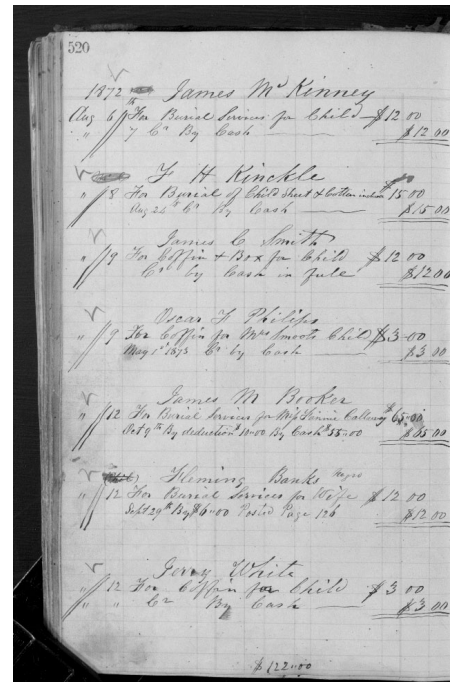 520
1872 James McKinney
Aug 6th For Burial Services for Child $12 00
" 7 Cr By Cash $12 00
F H Kinckle
" 8 For Burial of Child Sheet & Cotton $15 00
Aug 24th Cr By Cash $15 00
James C Smith
" 9 For Coffin & Box for Child $12 00
Cr by Cash in full $12 00
Oscar F Philips
" 9 For Coffin for Mrs Smoots Child $3 00
May 1st 1873 Cr by Cash $3 00
James M Booker
" 12 For Burial Services for Miss Calloway $65 00
Oct 9th By deduction $10=00 By Cash $55=00 $65 00
Fleming Banks Negro
" 12 For Burial Services for Wife $12 00
Sept 29th By $6=00 Posted Page 126 $12 00
Gerry White
" 12 For Coffin for Child $3 00
" " Cr By Cash $3 00
$122=00